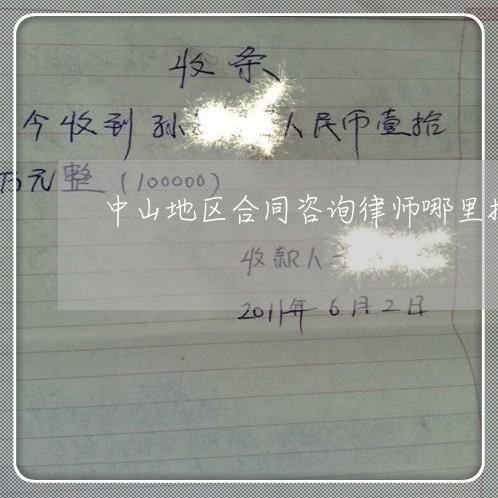 收条
今收到孙 人民币壹拾
万元整（100000）
中山地区合同咨询律师哪里
收款人
2011年6月2日